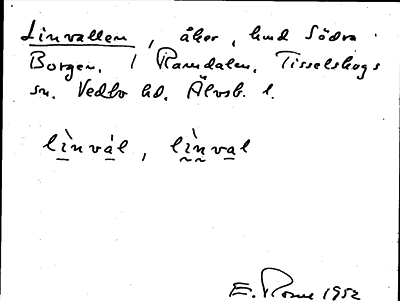 Linvallen, åker, hmd Södra
Borgen, / Ramdalen, Tisselskogs
sn. Vedbo hd. Älvsb. l.
lìnvál, lìnval
E. Rosne 1952